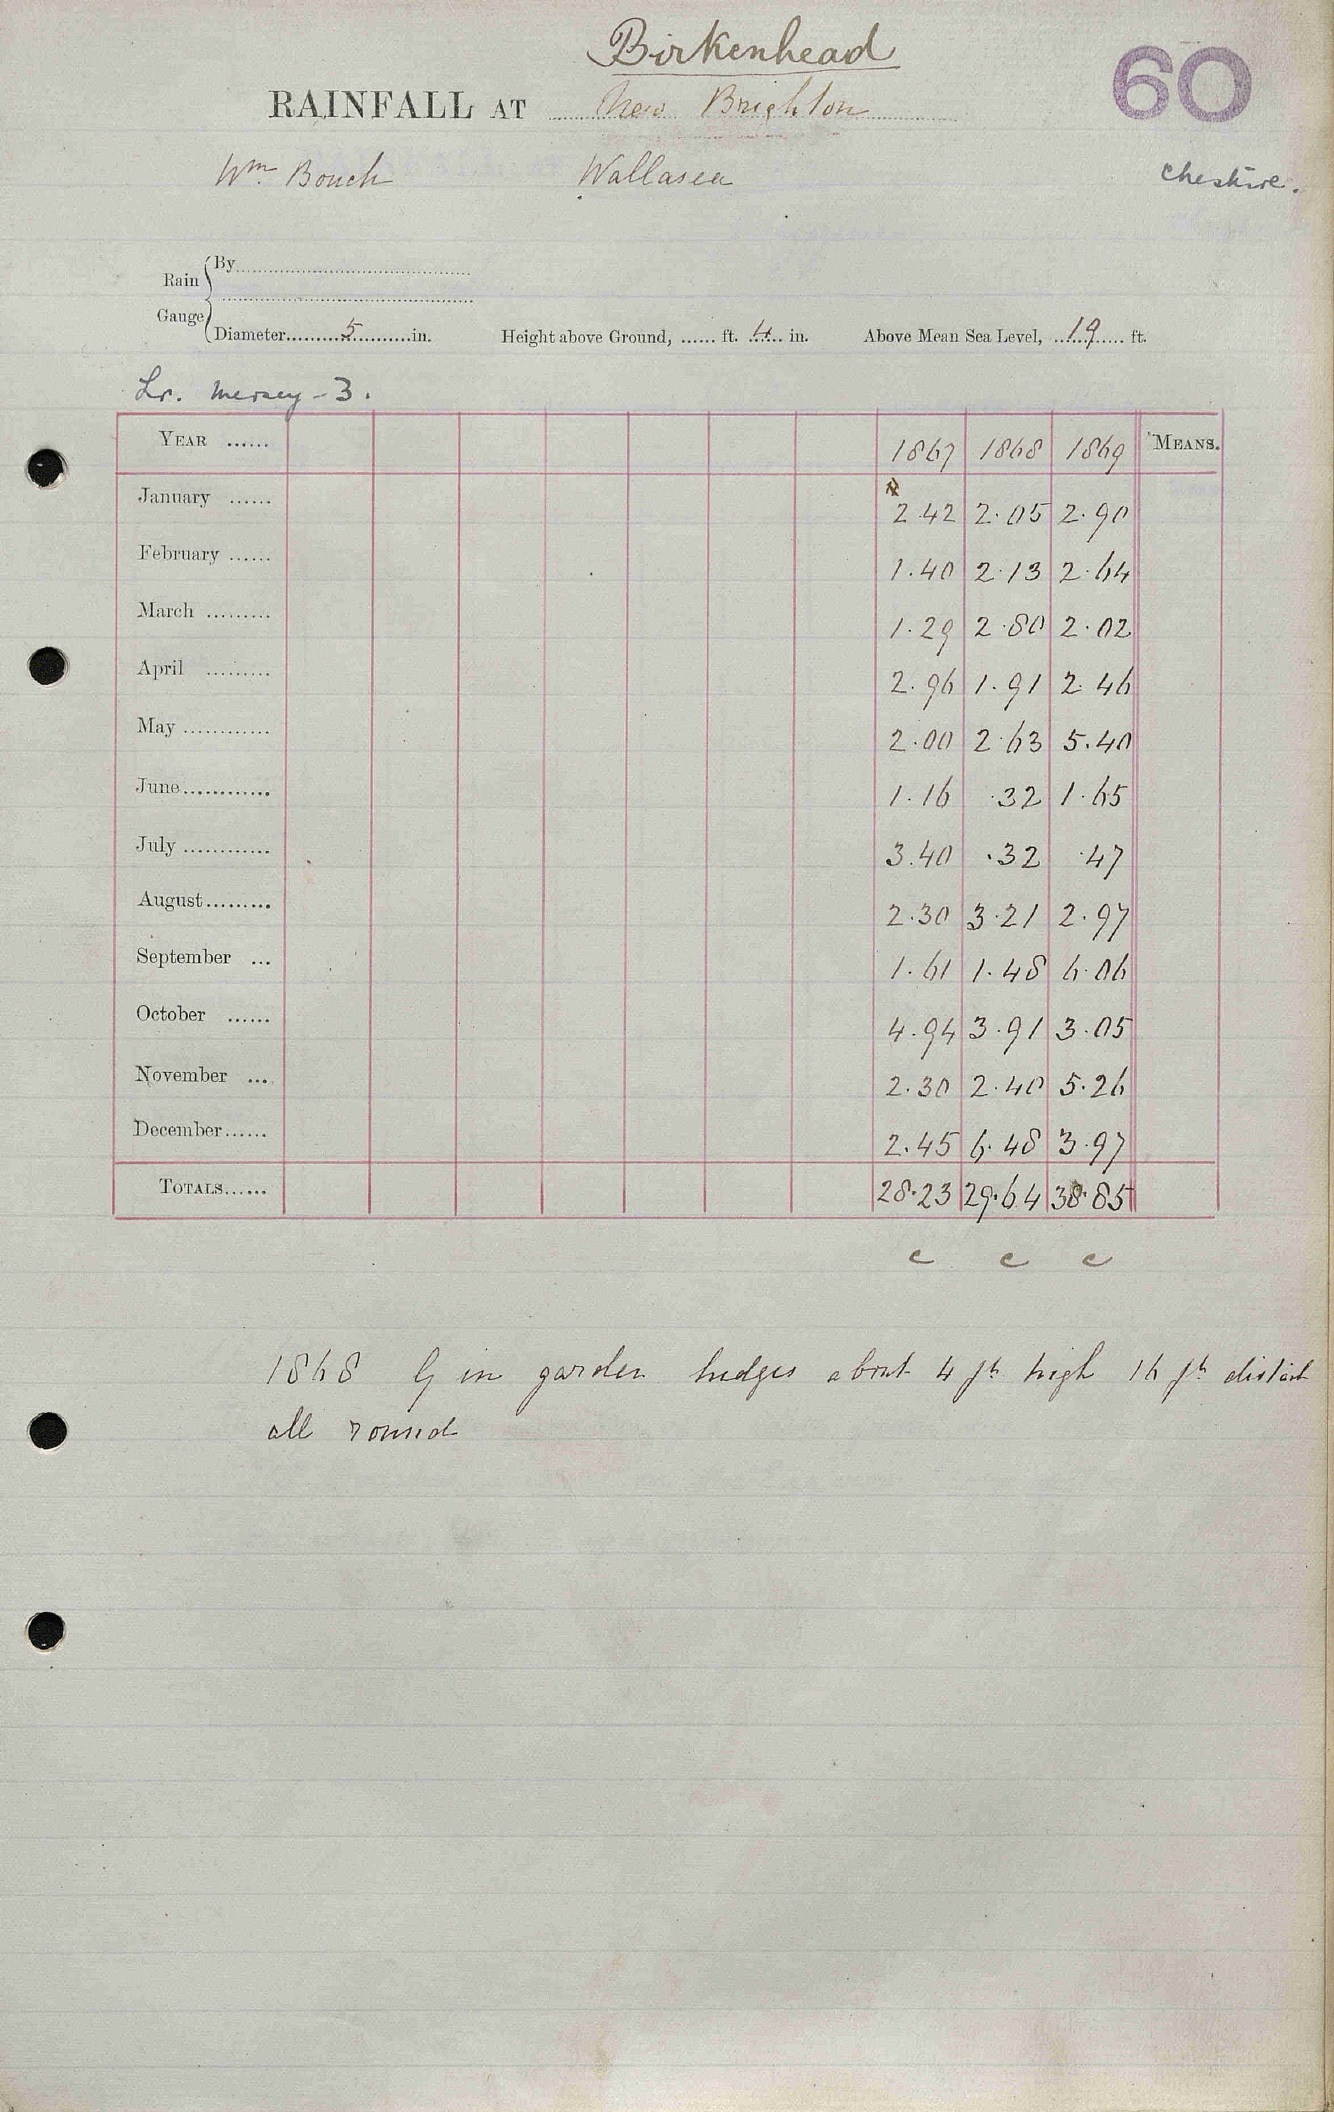 Birkenhead
60
RAINFALL AT New Brighton
Wm. Bouch Wallasea Cheshire.
Rain Gauge
By
Diameter 5 in. Height above Ground, ...... ft. 4 in. Above Mean Sea Level, 19 ft.
Lr. Mersey - 3.
YEAR ...... 1867 1868 1869 MEANS.
January ...... 2.42 2.05 2.90
February ...... 1.40 2.13 2.64
March ......... 1.29 2.80 2.02
April ......... 2.96 1.91 2.46
May ............ 2.00 2.63 5.40
June............ 1.16 .32 1.65
July ............ 3.40 .32 .47
August......... 2.30 3.21 2.97
September ... 1.61 1.48 6.06
October ...... 4.94 3.91 3.05
November ... 2.30 2.40 5.26
December...... 2.45 6.48 3.97
TOTALS...... 28.23 29.64 38.85
c c c
1868 G in garden hedges about 4 ft high 16 ft distant
all round